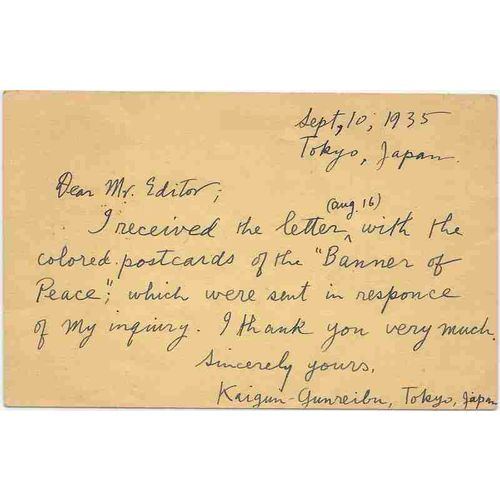 Sept, 10, 1935
Tokyo, Japan.
Dear Mr. Editor;
(aug. 16)
I received the letter ^ with the
colored postcards of the "Banner of
Peace", which were sent in responce
of my inquiry. I thank you very much.
Sincerely yours,
Kaigun-Gunreibu, Tokyo, Japan